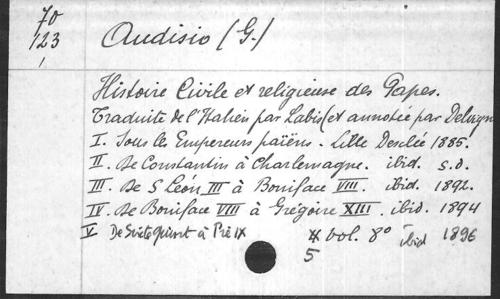 70
123 Audisio (G.)
Histoire Civile et religieuse des Papes.
Traduite de l'Italien par Labis (et annotée par
I. Sous les Empereurs païens. Lille Desclée 1885.
II. De Constantin à Charlemagne. ibid. s.d.
III. De S León III à Boniface VIII. ibid. 1892.
IV. De Boniface VIII à Grégoire XIII. ibid. 1894
V De Sixte quint à Pie IX 4 vol. 8º ibid 1896
5